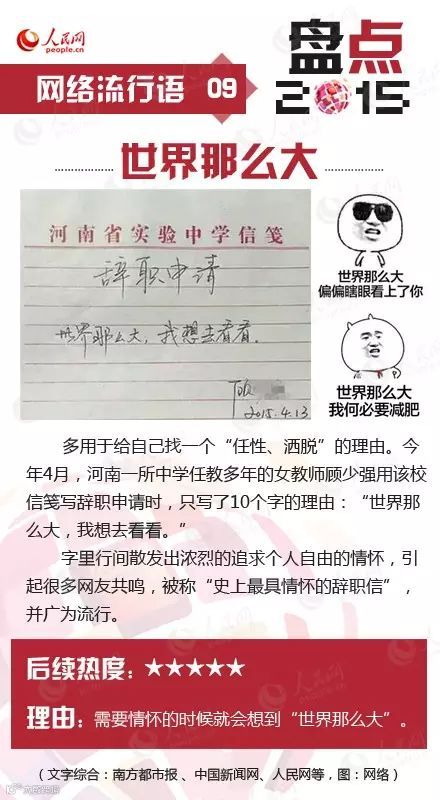 人民网
people.cn
盘点
2015
网络流行语 09
世界那么大
河南省实验中学信笺
辞职申请
世界那么大，我想去看看。
2015.4.13
世界那么大
偏偏瞎眼看上了你
世界那么大
我何必要减肥
多用于给自己找一个“任性、洒脱”的理由。今
年4月，河南一所中学任教多年的女教师顾少强用该校
信笺写辞职申请时，只写了10个字的理由：“世界那
么大，我想去看看。”
字里行间散发出浓烈的追求个人自由的情怀，引
起很多网友共鸣，被称“史上最具情怀的辞职信”，
并广为流行。
后续热度：★★★★★
理由：需要情怀的时候就会想到“世界那么大”。
（文字综合：南方都市报、中国新闻网、人民网等，图：网络）